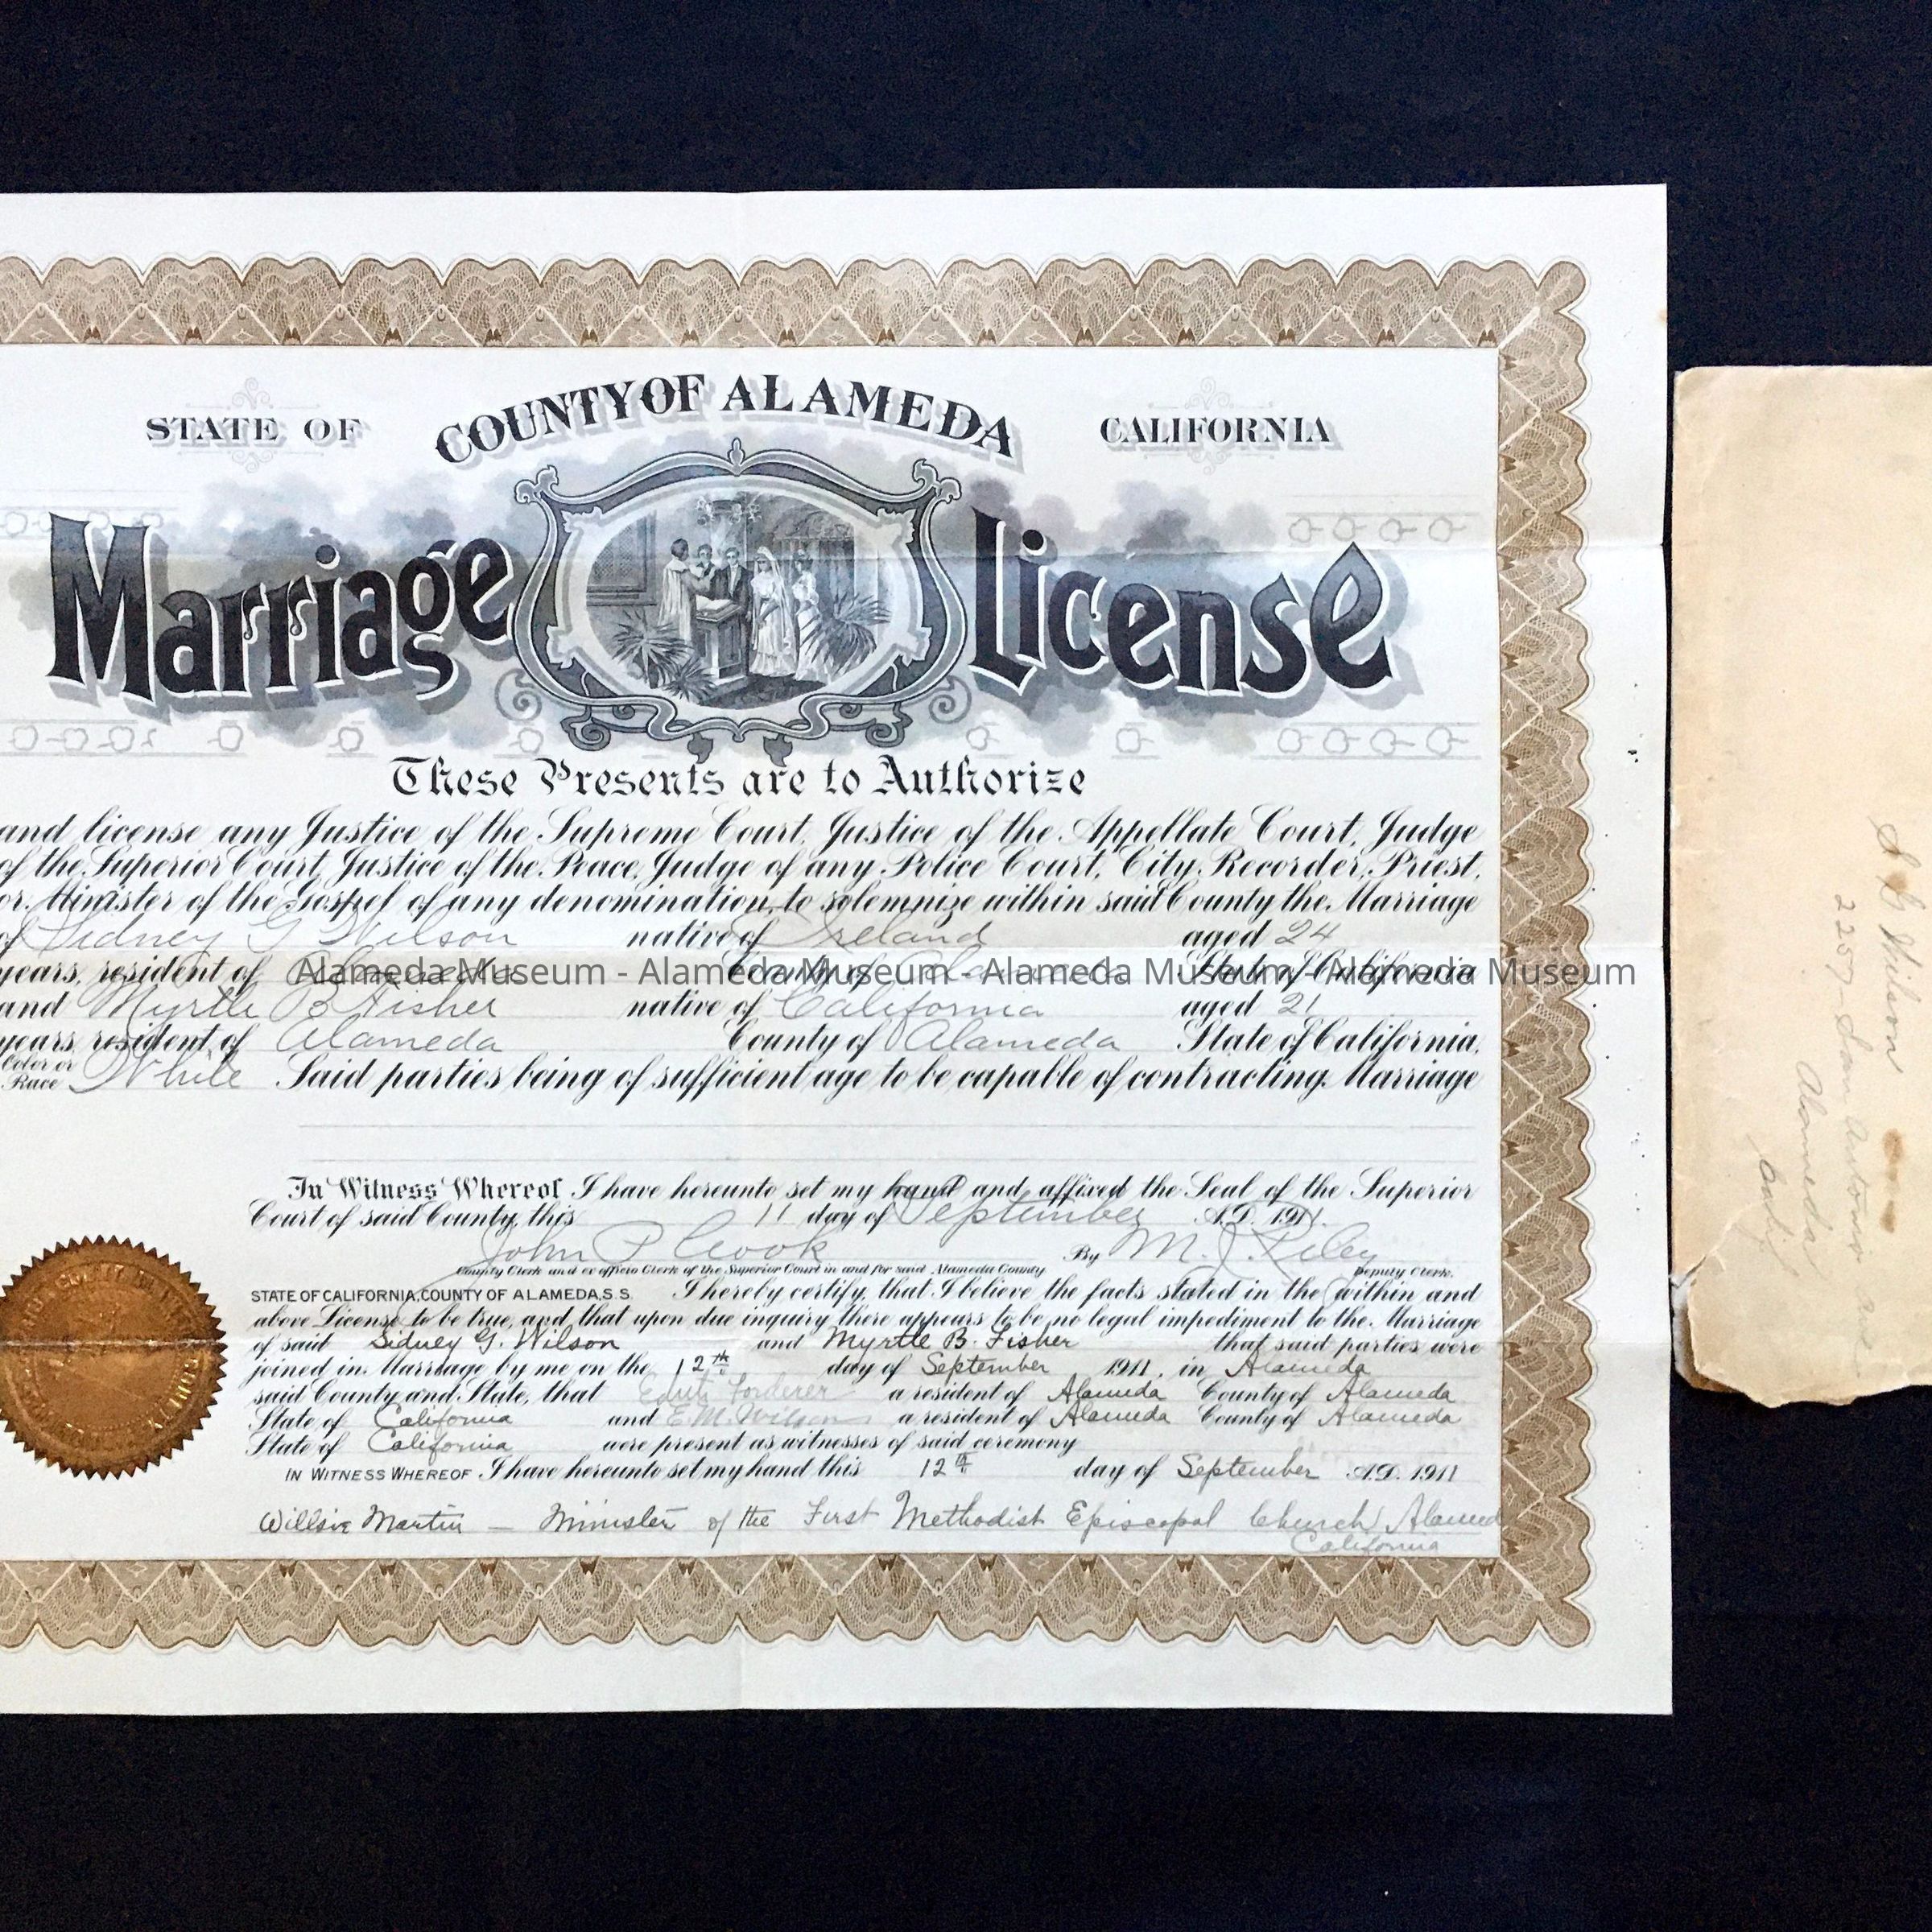 STATE OF COUNTY OF ALAMEDA CALIFORNIA
Marriage License
These Presents are to Authorize
and license any Justice of the Supreme Court, Justice of the Appellate Court, Judge
of the Superior Court, Justice of the Peace, Judge of any Police Court, City Recorder, Priest,
or Minister of the Gospel of any denomination, to solemnize within said County the Marriage
of Sidney G Wilson native of Ireland aged 24
years, resident of Alameda County of Alameda State of California
Alameda Museum - Alameda Museum - Alameda Museum - Alameda Museum
and Myrtle B Fisher native of California aged 21
years, resident of Alameda County of Alameda State of California,
Color or Race White Said parties being of sufficient age to be capable of contracting Marriage
In Witness Whereof I have hereunto set my hand and affixed the Seal of the Superior
Court of said County, this 11 day of September A.D. 1911.
John P Cook By M. J. Riley
County Clerk and ex officio Clerk of the Superior Court in and for said Alameda County Deputy Clerk.
STATE OF CALIFORNIA, COUNTY OF ALAMEDA, S.S. I hereby certify, that I believe the facts stated in the within and
above License to be true, and that upon due inquiry there appears to be no legal impediment to the Marriage
of said Sidney G. Wilson and Myrtle B. Fisher that said parties were
joined in Marriage by me on the 12th day of September 1911, in Alameda
said County and State, that Edith Forderer a resident of Alameda County of Alameda
State of California and E.M. Wilson a resident of Alameda County of Alameda
State of California were present as witnesses of said ceremony
IN WITNESS WHEREOF I have hereunto set my hand this 12th day of September A.D. 1911
Willsie Martin — Minister of the First Methodist Episcopal Church Alameda
California
S G Wilson
2257 - San Antonio ave
Alameda
Calif